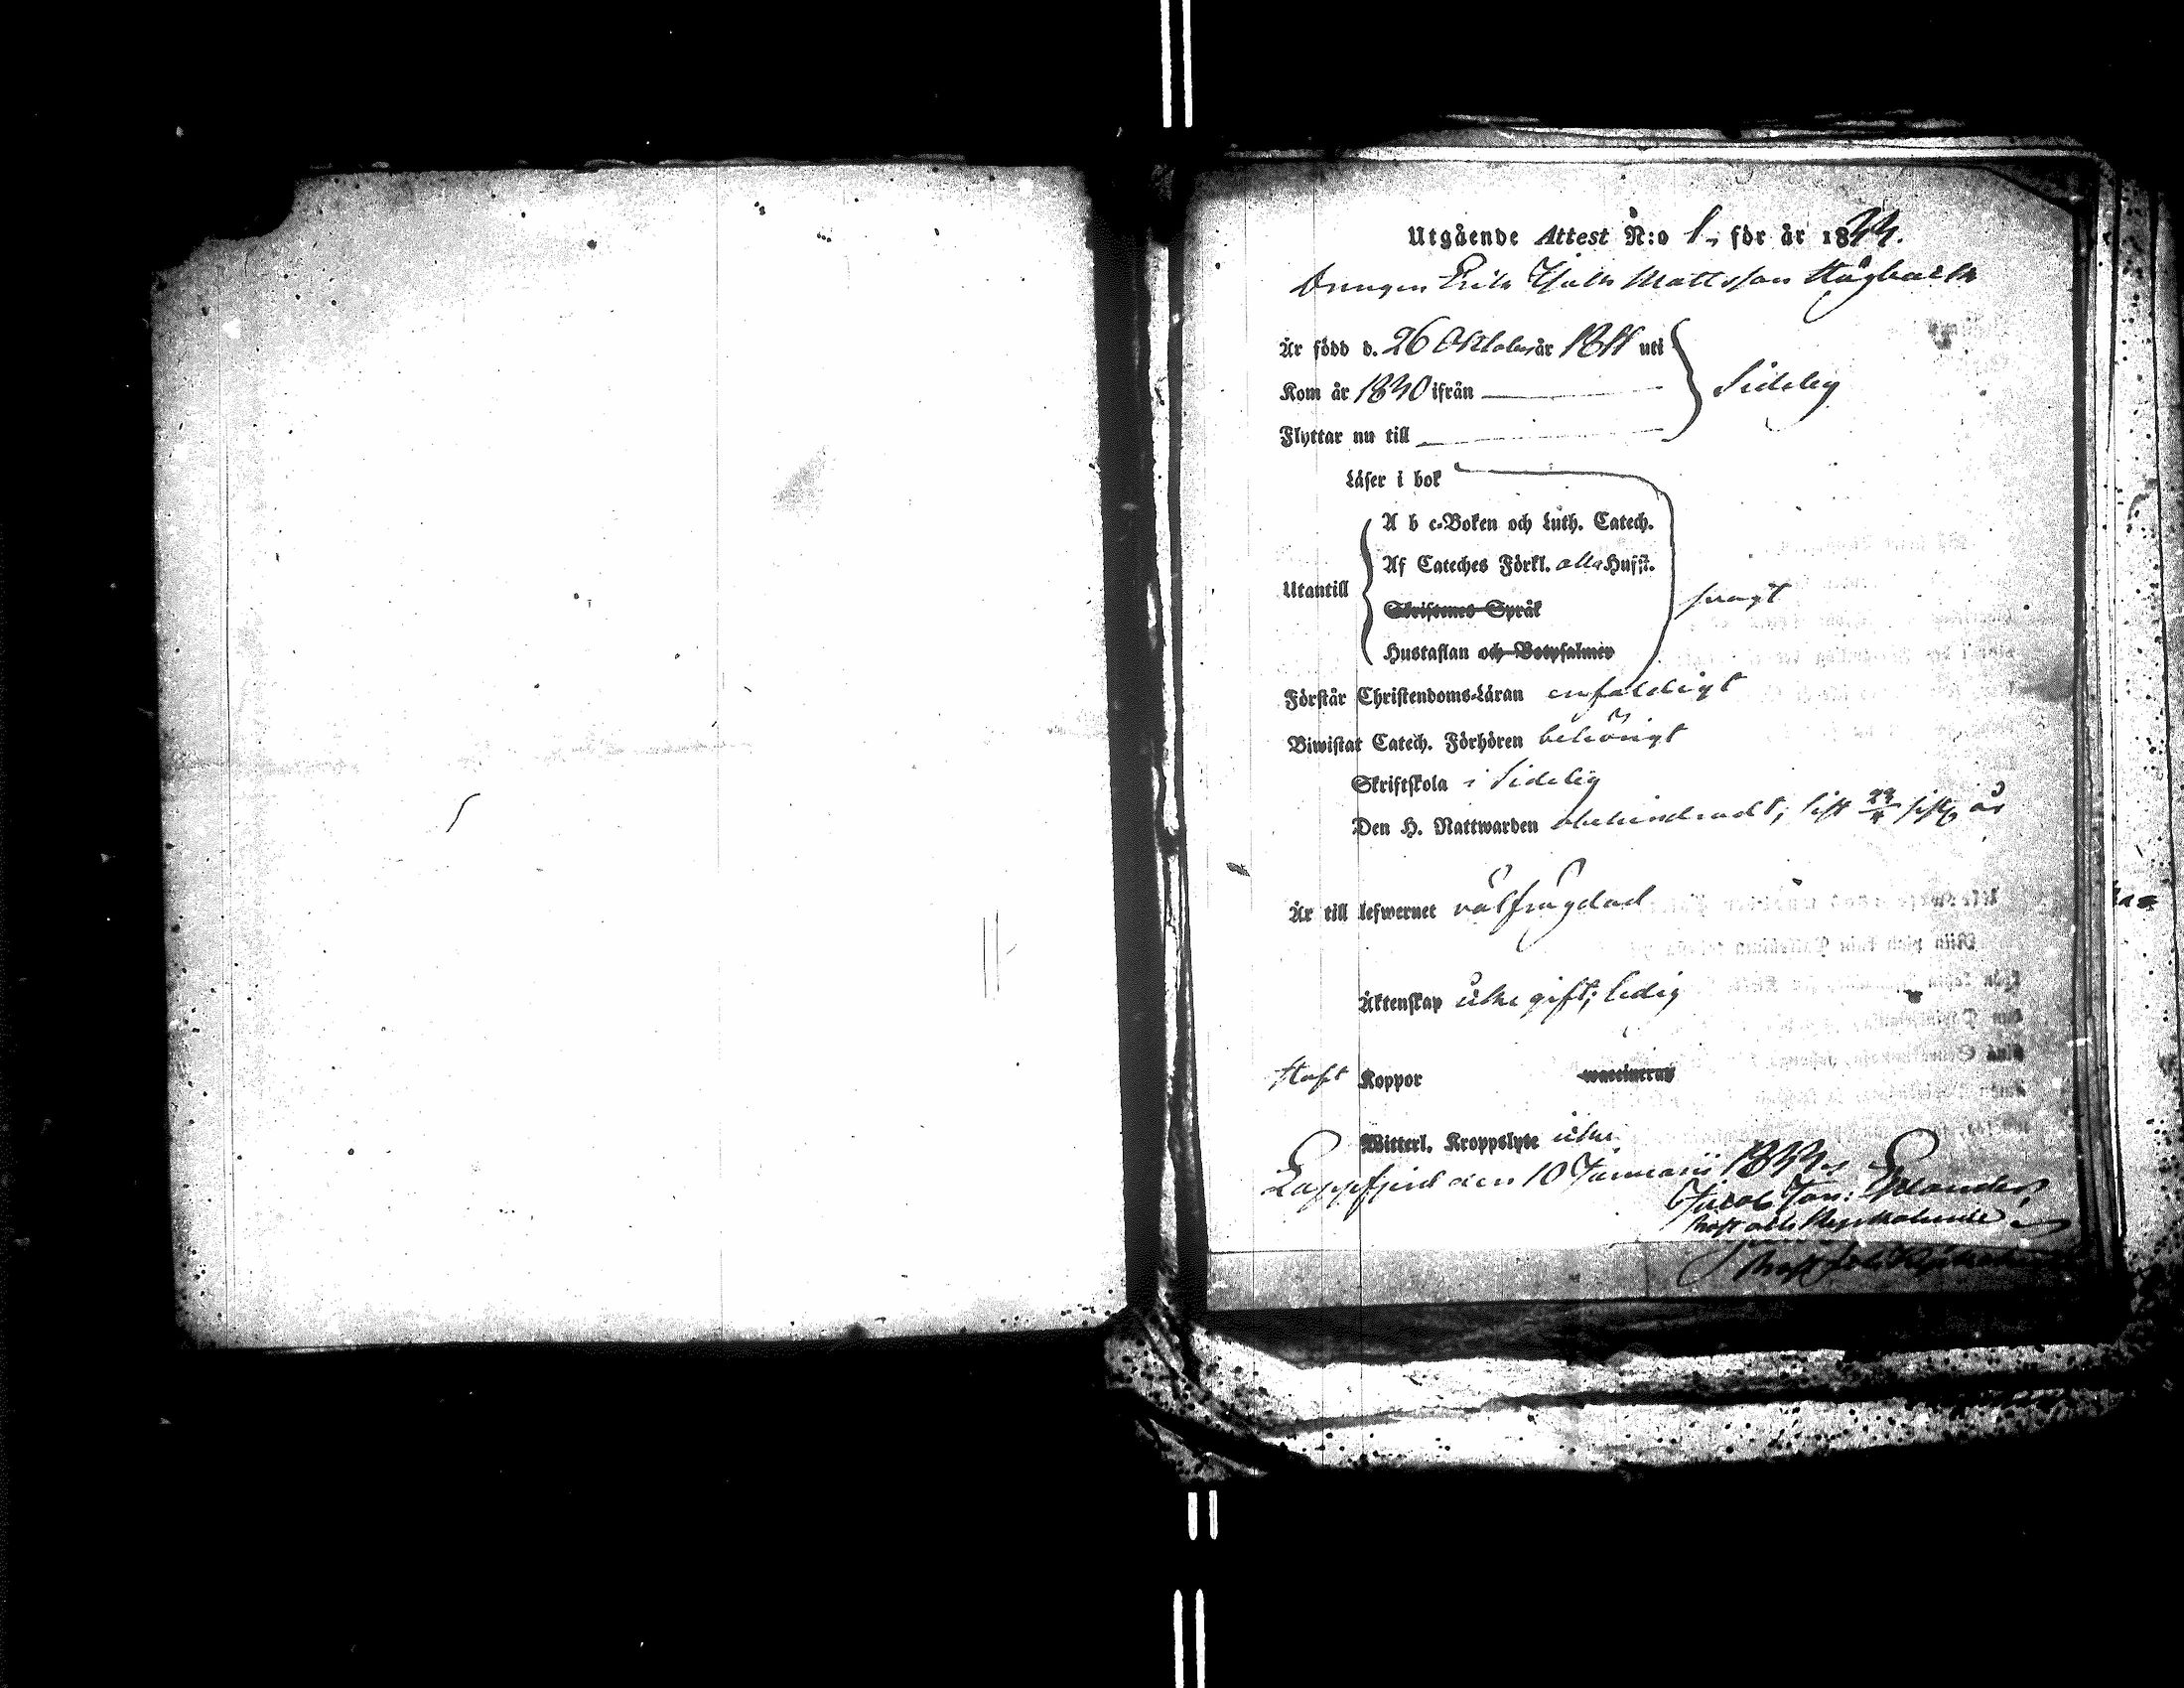 Utgående Attest N:o 1, för år 1833.
Drengen Erik Jfalk Mattsson Hågback
Är född d. 26 Oktober år 1811 uti
Kom år 1830 ifrån
Sideby
Flyttar nu till
Läser i bok
A b c-Boken och Luth. Catech.
Af Cateches Förkl. alla Hufst.
Utantill
Skriftenes Språk
svagt
Hustaflan och Botpsalmer
Förstår Christendoms-Läran enfaldigt
Biwistat Catech. Förhören behörigt
Skriftskola i Sideby
Den H. Nattwarden obehindradt, sist sistl. år
Är till lefwernet välfrägdad
Äktenskap icke gift; ledig
Haft Koppor waccinerus
Witterl. Kroppslyte icke
Lappfjerd den 10 Januarii 1833
Jacob Joh: